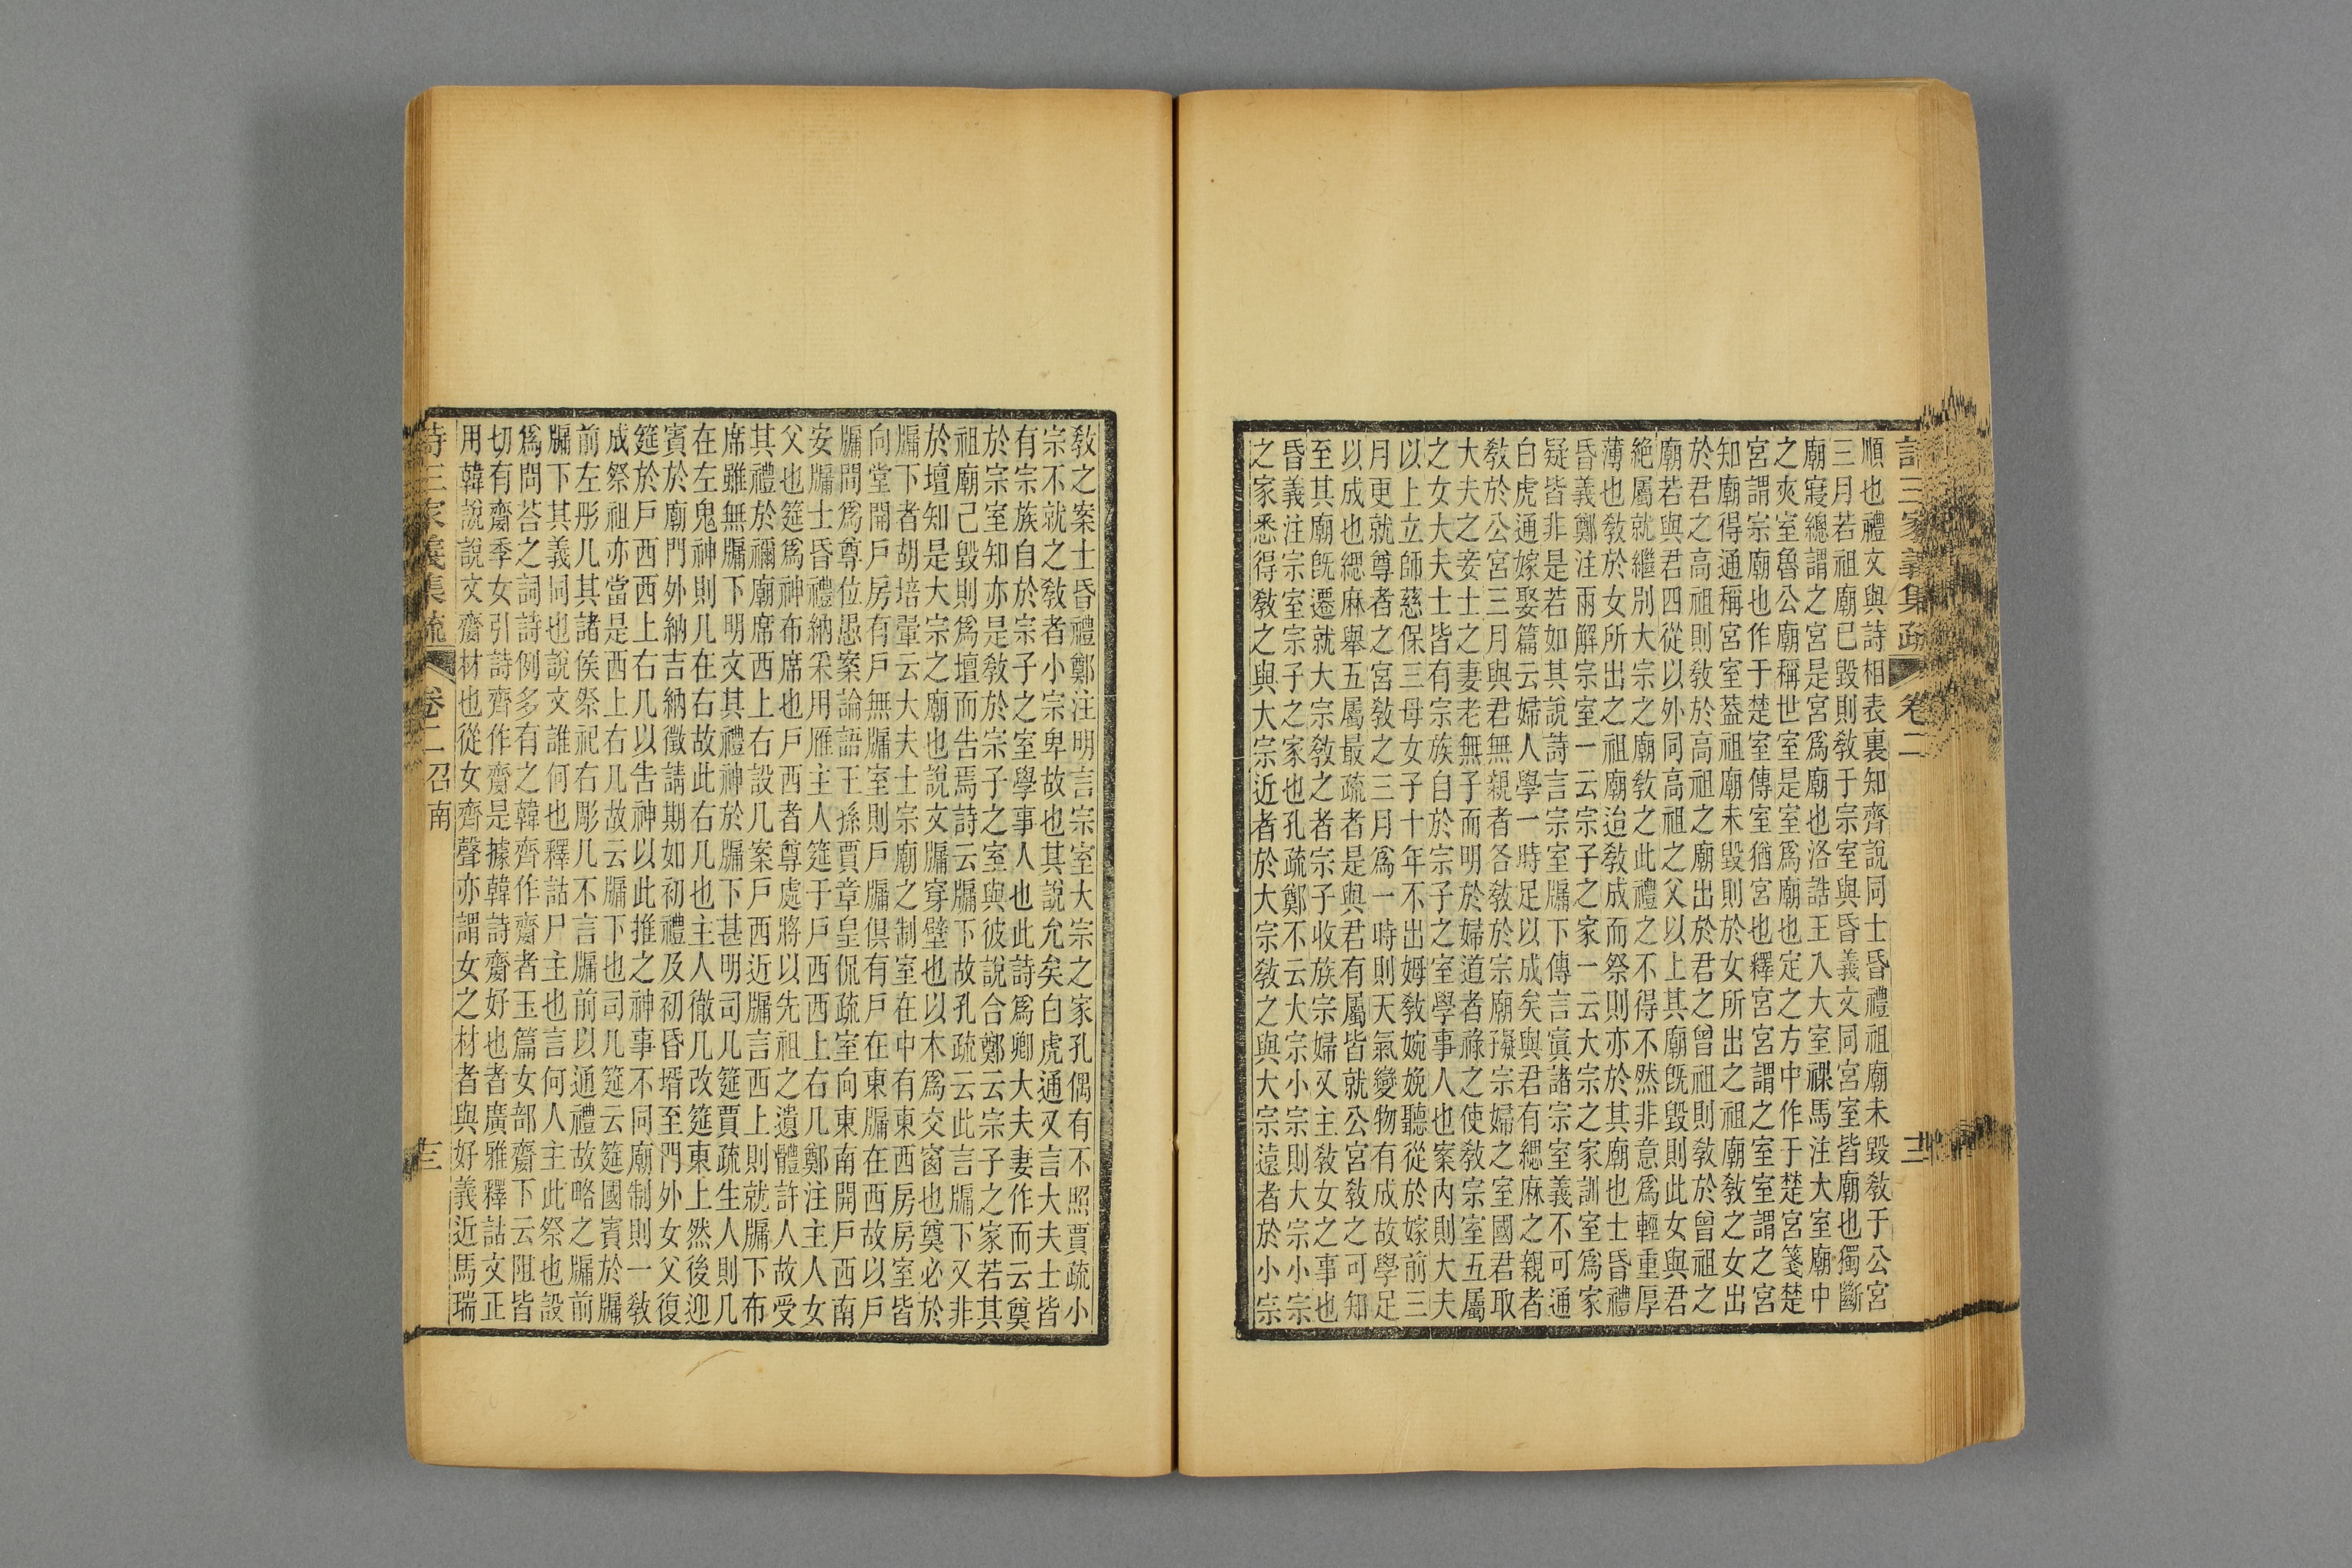 詩三家義集疏 卷二 十三
順也禮文與詩相表裏知齊說同士昏禮祖廟未毀敎于公宮
三月若祖廟已毀則敎于宗室與昏義文同宮室皆廟也獨斷
廟寢總謂之宮是宮爲廟也洛誥王入大室祼馬注大室廟中
之夾室魯公廟稱世室是室爲廟也定之方中作于楚宮箋楚
宮謂宗廟也作于楚室傳室猶宮也釋宮宮謂之室室謂之宮
知廟得通稱宮室葢祖廟未毀則於女所出之祖廟敎之女出
於君之高祖則敎於高祖之廟出於君之曾祖則敎於曾祖之
廟若與君四從以外同高祖之父以上其廟旣毀則此女與君
絶屬就繼別大宗之廟敎之此禮之不得不然非意爲輕重厚
薄也敎於女所出之祖廟迨敎成而祭則亦於其廟也士昏禮
昏義鄭注兩解宗室一云宗子之家一云大宗之家訓室爲家
疑皆非是若如其說詩言宗室牖下傳言寘諸宗室義不可通
白虎通嫁娶篇云婦人學一時足以成矣與君有緦麻之親者
敎於公宮三月與君無親者各敎於宗廟擬宗婦之室國君取
大夫之妾士之妻老無子而明於婦道者祿之使敎宗室五屬
之女大夫士皆有宗族自於宗子之室學事人也案內則大夫
以上立師慈保三母女子十年不出姆敎婉娩聽從於嫁前三
月更就尊者之宮敎之三月爲一時則天氣變物有成故學足
以成也緦麻舉五屬最疏者是與君有屬皆就公宮敎之可知
至其廟旣遷就大宗敎之者宗子收族宗婦又主敎女之事也
昏義注宗室宗子之家也孔疏鄭不云大宗小宗則大宗小宗
之家悉得敎之與大宗近者於大宗敎之與大宗遠者於小宗
敎之案士昏禮鄭注明言宗室大宗之家孔偶有不照賈疏小
宗不就之敎者小宗卑故也其說允矣白虎通又言大夫士皆
有宗族自於宗子之室學事人也此詩爲卿大夫妻作而云奠
於宗室知亦是敎於宗子之室與彼說合鄭云宗子之家若其
祖廟己毀則爲壇而告焉詩云牖下故孔疏云此言牖下又非
於壇知是大宗之廟也說文牖穿壁也以木爲交窗也奠必於
牖下者胡培翬云大夫士宗廟之制室在中有東西房房室皆
向堂開戶房有戶無牖室則戶牖俱有戶在東牖在西故以戶
牖問爲尊位愚案論語王孫賈章皇侃疏室向東南開戶西南
安牖士昏禮納采用雁主人筵于戶西西上右几鄭注主人女
父也筵爲神布席也戶西者尊處將以先祖之遺體許人故受
其禮於禰廟席西上右設几案戶西近牖言西上則就牖下布
席雖無牖下明文其禮神於牖下甚明司几筵賈疏生人則几
在左鬼神則几在右故此右几也主人徹几改筵東上然後迎
賓於廟門外納吉納徵請期如初禮及初昏壻至門外女父復
筵於戶西西上右几以告神以此推之神事不同廟制則一敎
成祭祖亦當是西上右几故云牖下也司几筵云筵國賓於牖
前左彤几其諸侯祭祀右彫几不言牖前以通禮故略之牖前
牖下其義同也說文誰何也釋詁尸主也言何人主此祭也設
爲問荅之詞詩例多有之韓齊作齌者玉篇女部齌下云阻皆
切有齌季女引詩齊作齌是據韓詩齌好也者廣雅釋詁文正
用韓說說文齌材也從女齊聲亦謂女之材者與好義近馬瑞
詩三家義集疏 卷二 召南 十三